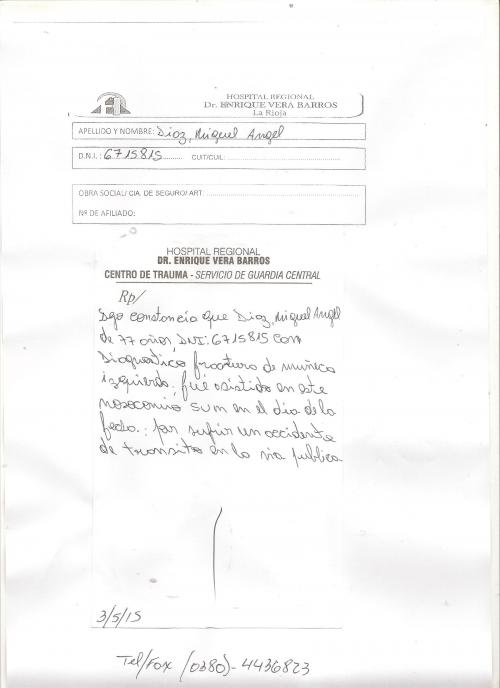 HOSPITAL REGIONAL
Dr. ENRIQUE VERA BARROS
La Rioja
APELLIDO Y NOMBRE: Dioz, Miguel Angel
D.N.I.: 6715815 CUIT/CUIL:
OBRA SOCIAL/ CIA. DE SEGURO/ ART:
Nº DE AFILIADO:
HOSPITAL REGIONAL
DR. ENRIQUE VERA BARROS
CENTRO DE TRAUMA - SERVICIO DE GUARDIA CENTRAL
Rp/
Dejo constancia que Dioz, Miguel Angel
de 77 años, DNI: 6715815 con
Diagnostico fractura de muñeca
izquierda, fué asistido en este
nosocomio en el dia de la
fecha.: por sufrir un accidente
de transito en la via publica
3/5/15
Tel/Fax (0380)-4436823